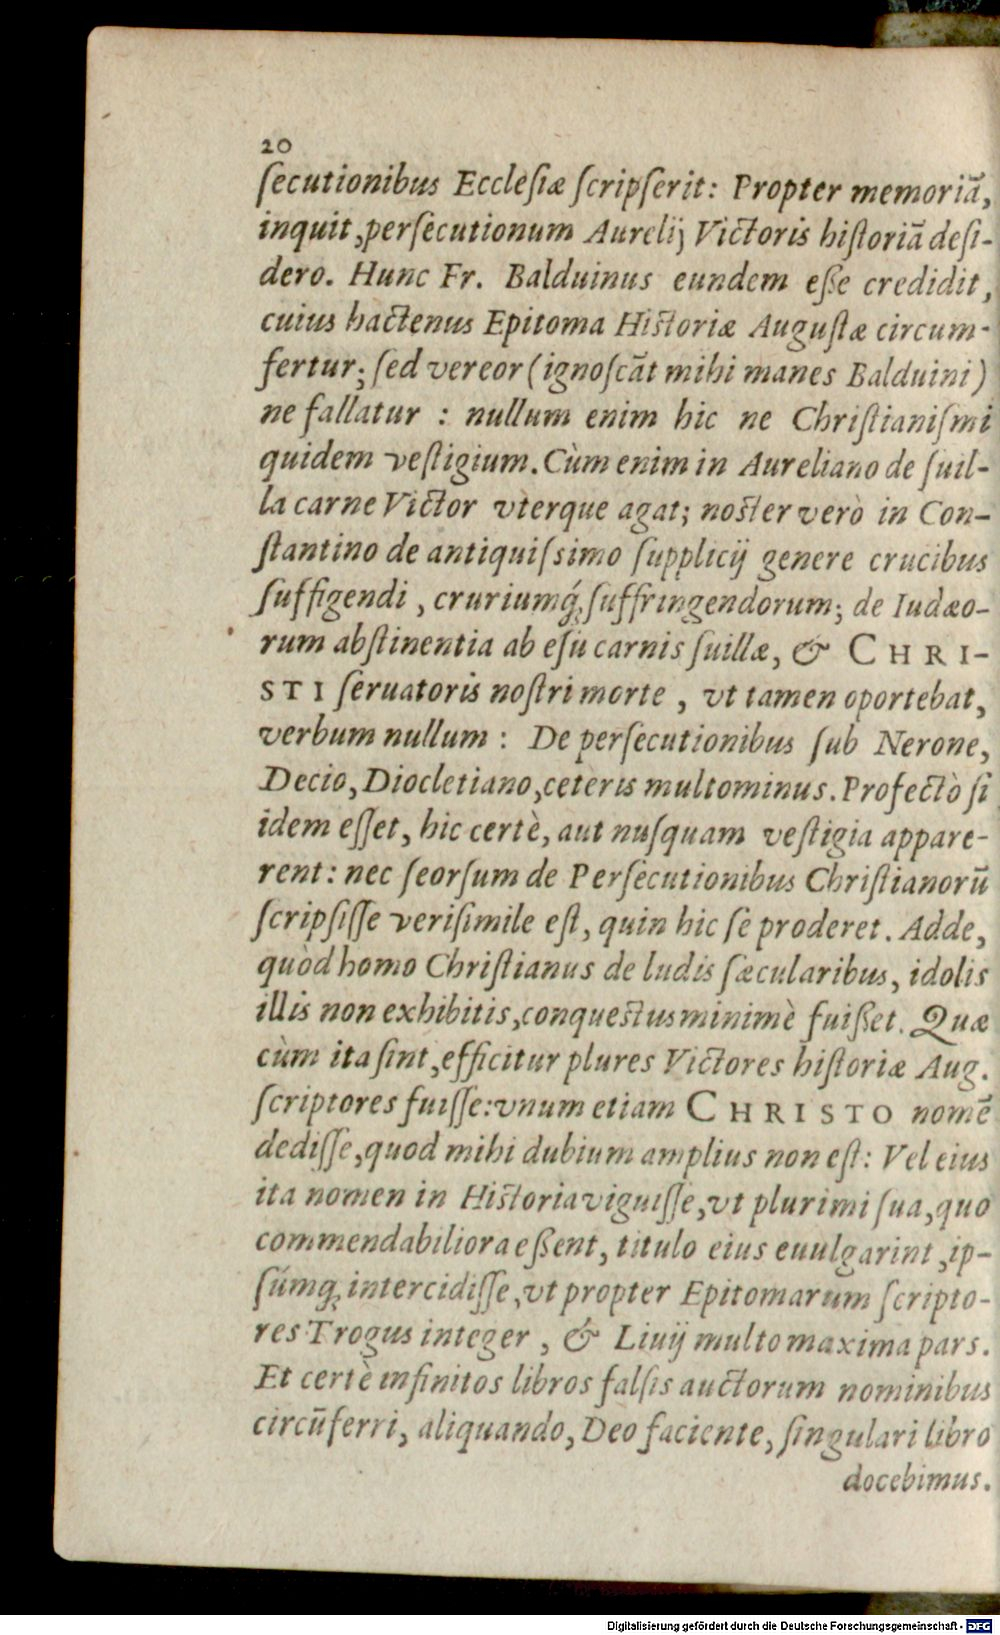 20
ſecutionibus Eccleſiæ ſcripſerit: Propter memoriā,
inquit, perſecutionum Aurelij Victoris hiſtoriā deſi-
dero. Hunc Fr. Balduinus eundem eſſe credidit,
cuius hactenus Epitoma Hiſtoriæ Auguſtæ circum-
fertur; ſed vereor (ignoſcāt mihi manes Balduini)
ne fallatur : nullum enim hic ne Chriſtianiſmi
quidem veſtigium. Cùm enim in Aureliano de ſuil-
la carne Victor vterque agat; noſter verò in Con-
ſtantino de antiquiſsimo ſupplicij genere crucibus
ſuffigendi, cruriumq́; ſuffringendorum; de Iudæo-
rum abſtinentia ab eſu carnis ſuillæ, & CHRI-
STI ſeruatoris noſtri morte, vt tamen oportebat,
verbum nullum : De perſecutionibus ſub Nerone,
Decio, Diocletiano, ceteris multominus. Profectò ſi
idem eſſet, hic certè, aut nuſquam veſtigia appare-
rent: nec ſeorſum de Perſecutionibus Chriſtianorū
ſcripſiſſe veriſimile eſt, quin hic ſe proderet. Adde,
quòd homo Chriſtianus de ludis ſæcularibus, idolis
illis non exhibitis, conqueſtus minimè fuiſſet. Quæ
cùm ita ſint, efficitur plures Victores hiſtoriæ Aug.
ſcriptores fuiſſe: vnum etiam CHRISTO nomē
dediſſe, quod mihi dubium amplius non eſt: Vel eius
ita nomen in Hiſtoria viguiſſe, vt plurimi ſua, quo
commendabiliora eſſent, titulo eius euulgarint, ip-
ſúmq; intercidiſſe, vt propter Epitomarum ſcripto-
res Trogus integer, & Liuij multo maxima pars.
Et certè infinitos libros falſis auctorum nominibus
circūferri, aliquando, Deo faciente, ſingulari libro
docebimus.
Digitalisierung gefördert durch die Deutsche Forschungsgemeinschaft - DFG